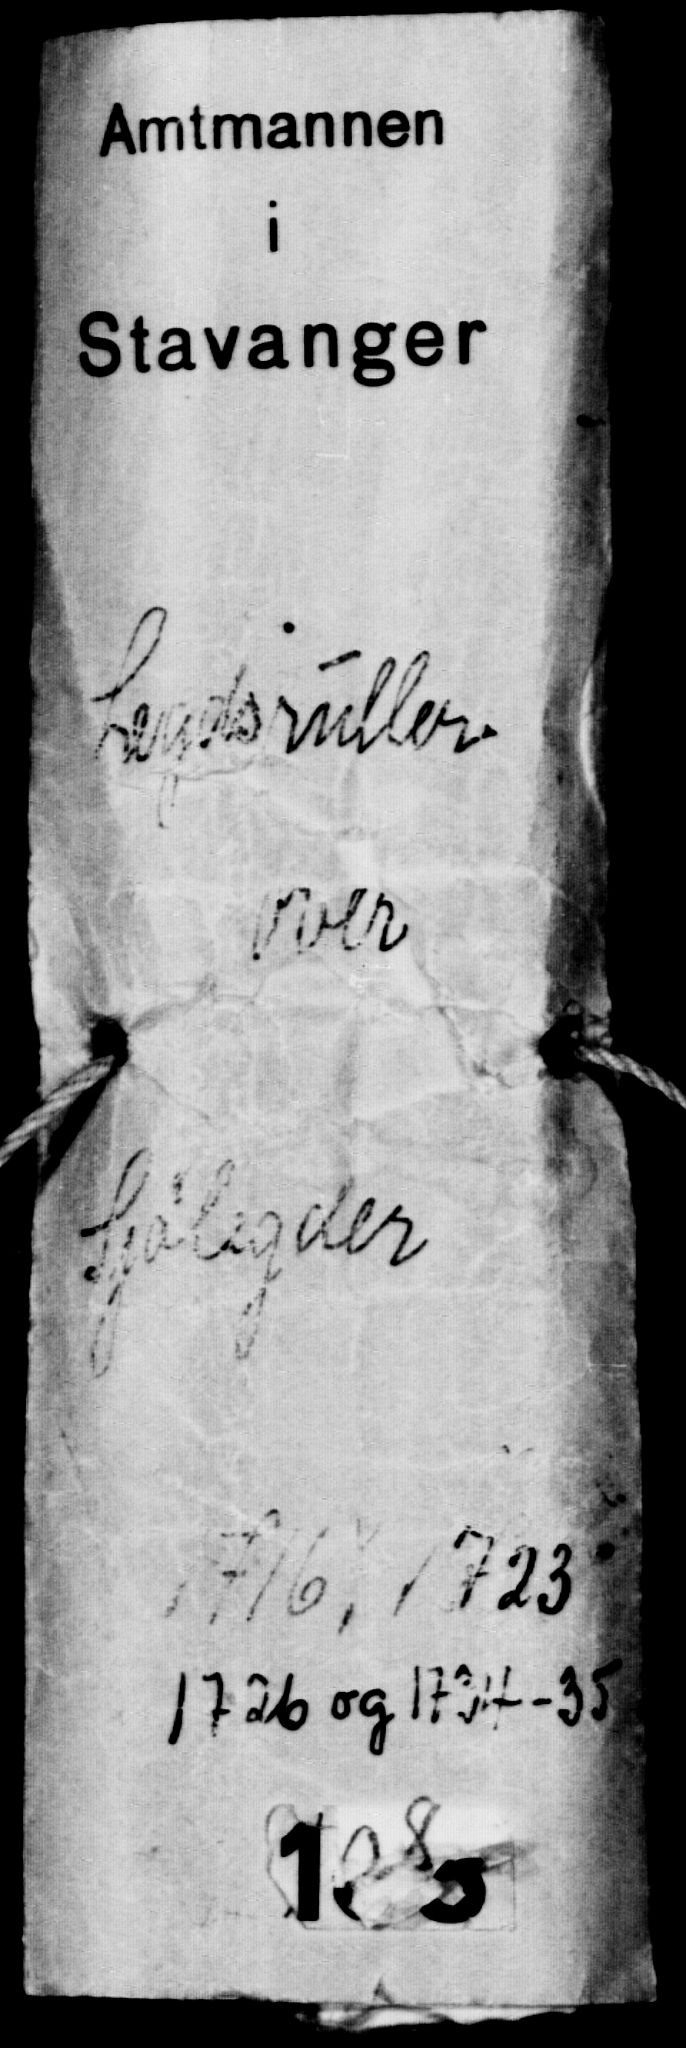 Amtmannen
i
Stavanger
Legdsrüller
over
Sjölegder
1716, 1723
1726 og 1734-35